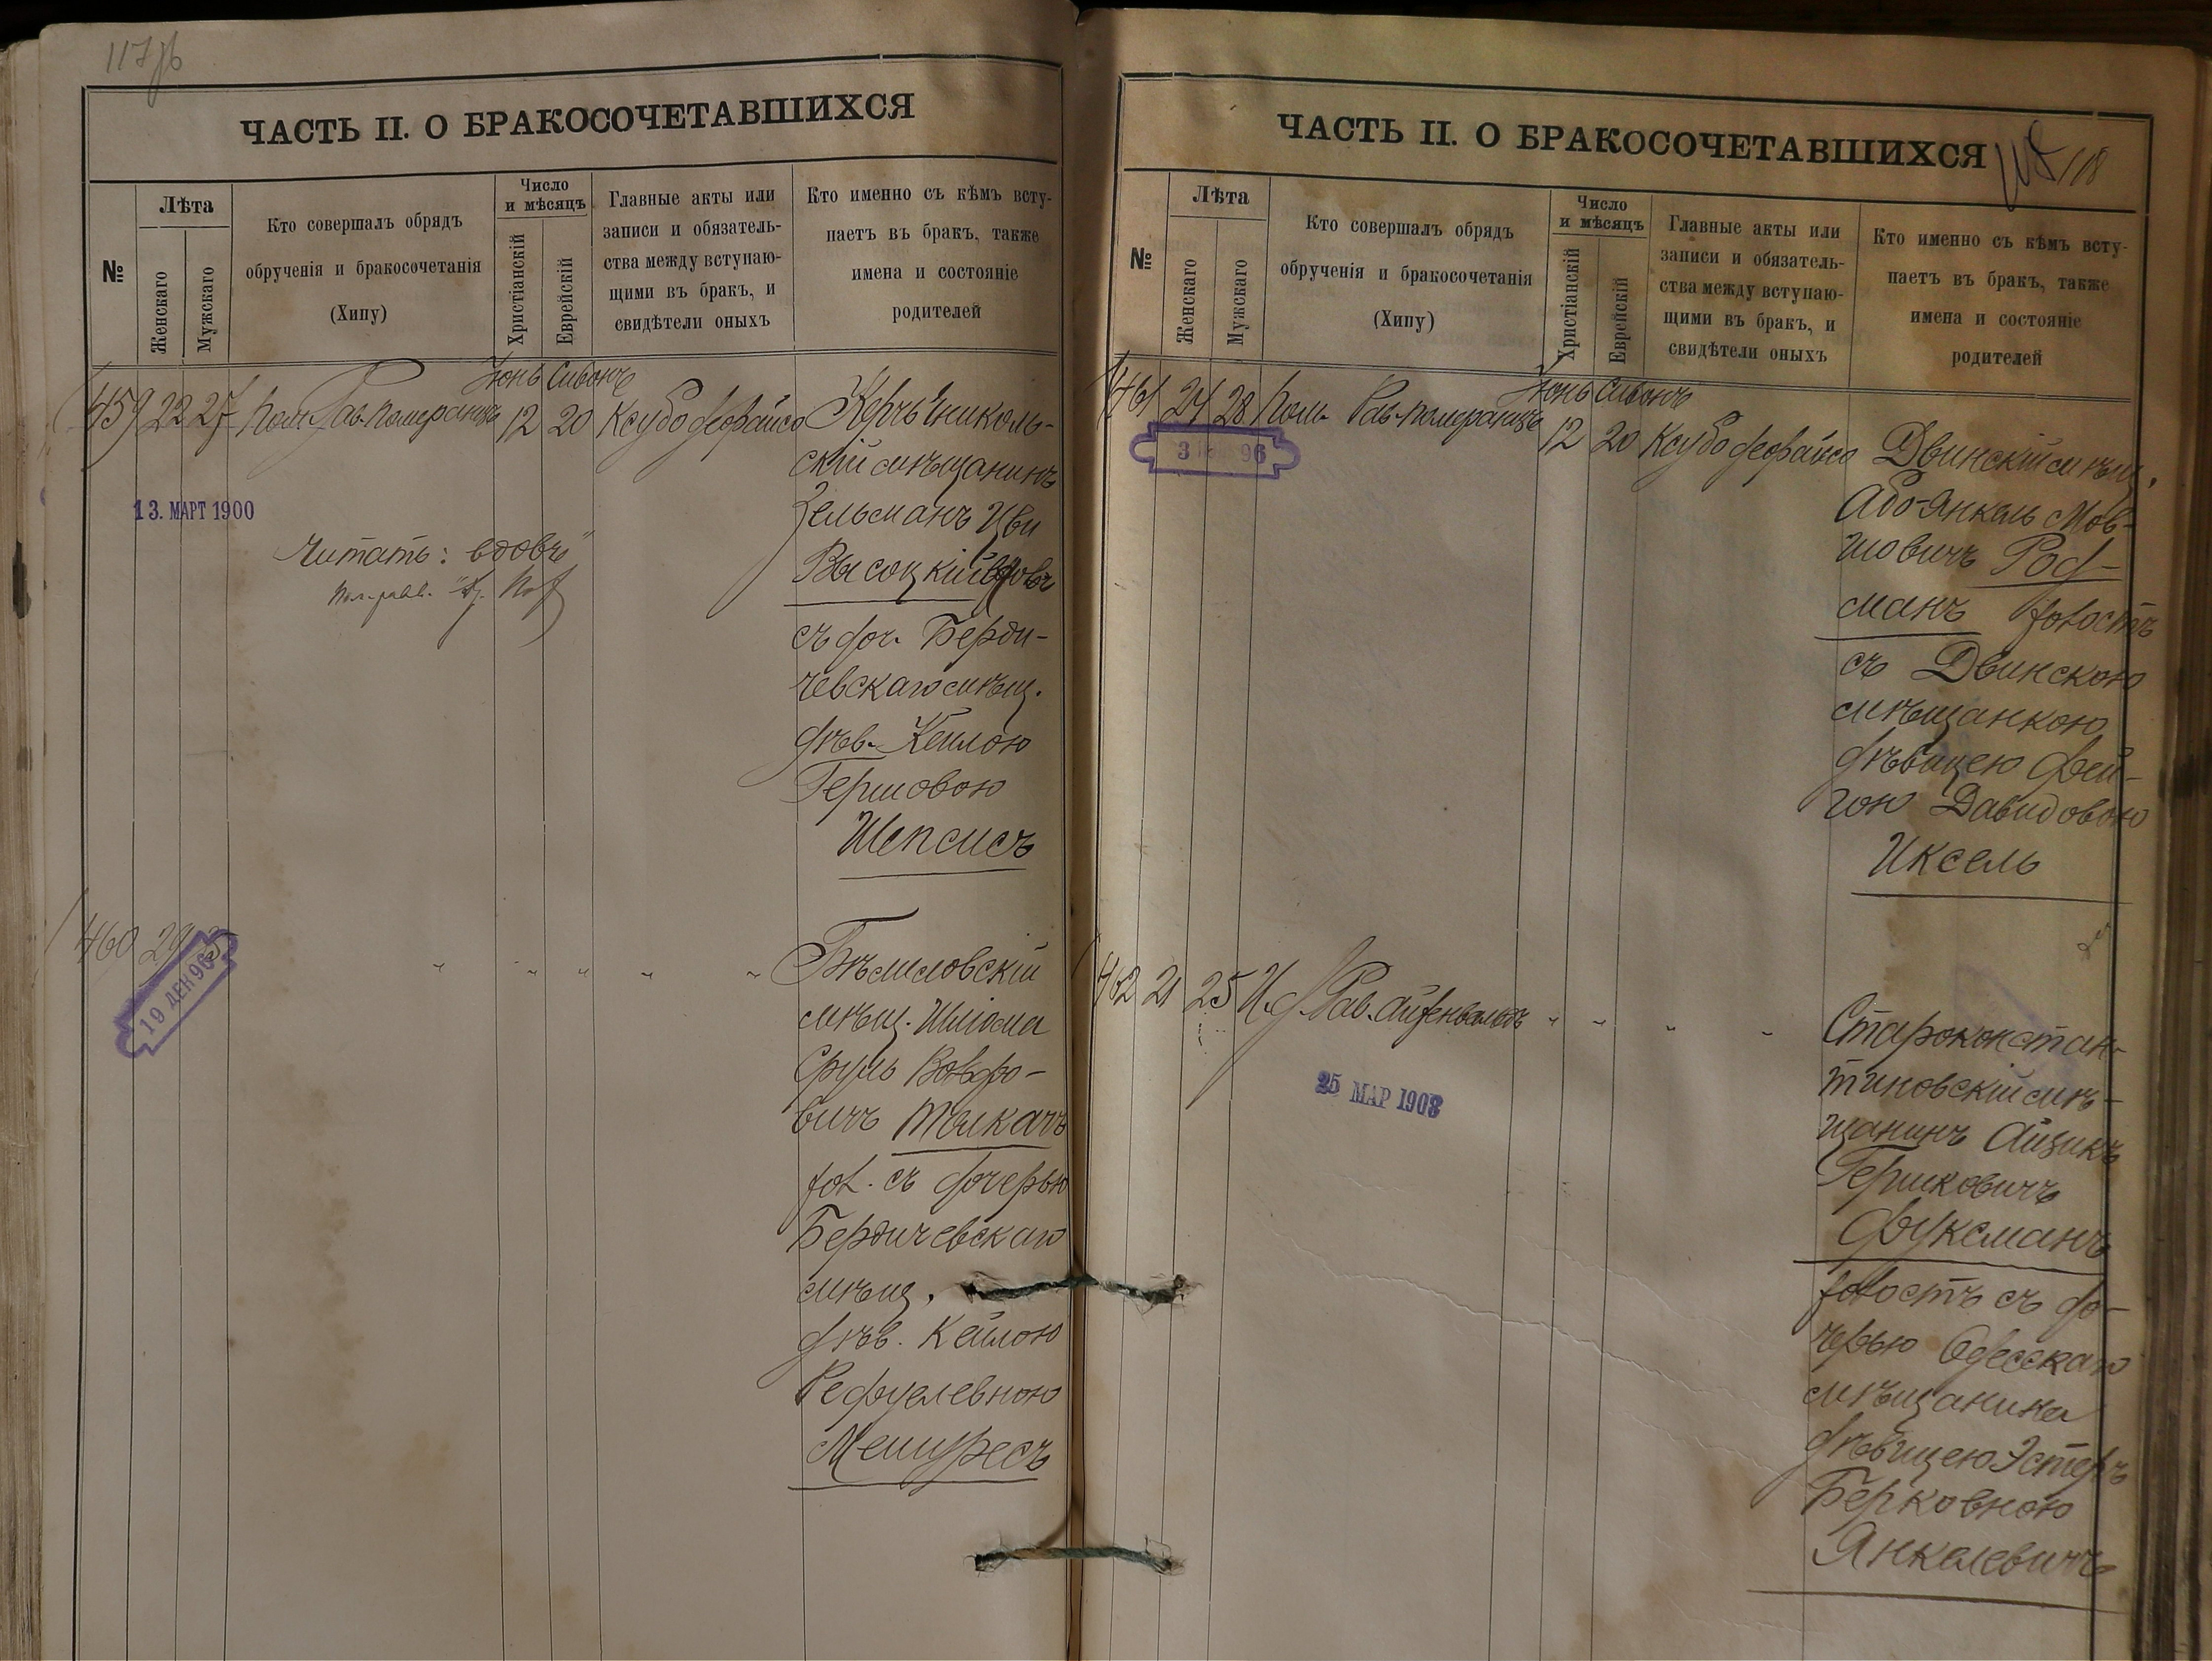 117об
ЧАСТЬ II. О БРАКОСОЧЕТАВШИХСЯ
№
Лѣта
Женскаго
Мужскаго
Кто совершалъ обрядъ
обрученія и бракосочетанія
(Хипу)
Число
и мѣсяцъ
Христіанскій
Еврейскій
Главные акты или
записи и обязатель-
ства между вступаю-
щими въ бракъ, и
свидѣтели оныхъ
Кто именно съ кѣмъ всту-
паетъ въ бракъ, также
имена и состояніе
родителей
Іюнь Сивонъ
459 22 27 Пом. Рав. Померанцъ 12 20 Ксубо Деорайсо Керчь Эниколь-
скій мѣщанинъ
Зельманъ Цви
Высоцкій вдовъ
съ доч. Берди-
чевскаго мѣщ.
дѣв. Кейлою
Гершовою
Шепсисъ
13. МАРТ 1900
Читать: "вдовъ"
460 29
19 ДЕК 96
" " " " "
Бѣлиловскій
мѣщ. Шлiома
Сруль Вольфо-
вичъ Толкачъ
хол. съ дочерью
Бердичевскаго
мѣщ.
дѣв. Кейлою
Рефуелевною
Мешуресъ
ЧАСТЬ II. О БРАКОСОЧЕТАВШИХСЯ
118
№
Лѣта
Женскаго
Мужскаго
Кто совершалъ обрядъ
обрученія и бракосочетанія
(Хипу)
Число
и мѣсяцъ
Христіанскій
Еврейскій
Главные акты или
записи и обязатель-
ства между вступаю-
щими въ бракъ, и
свидѣтели оныхъ
Кто именно съ кѣмъ всту-
паетъ въ бракъ, также
имена и состояніе
родителей
Іюнь Сивонъ
461 24 28 Пом. Рав. Померанцъ 12 20 Ксубо Деорайсо Двинскій мѣщ.
Або-Янкель Мов-
шовичъ Роф-
манъ холостъ
съ Двинскою
мѣщанкою
дѣвицею Фей-
гою Давидовою
Иксель
96
462 21 25 И. д. Рав. Айзенвальдъ " " " "
Староконстан-
тиновскій мѣ-
щанинъ Айзикъ
Гершковичъ
Фуксманъ
холостъ съ до-
черью Одесскаго
мѣщанина
дѣвицею Эстеръ
Берковною
Янкелевичъ
25 МАР 1908